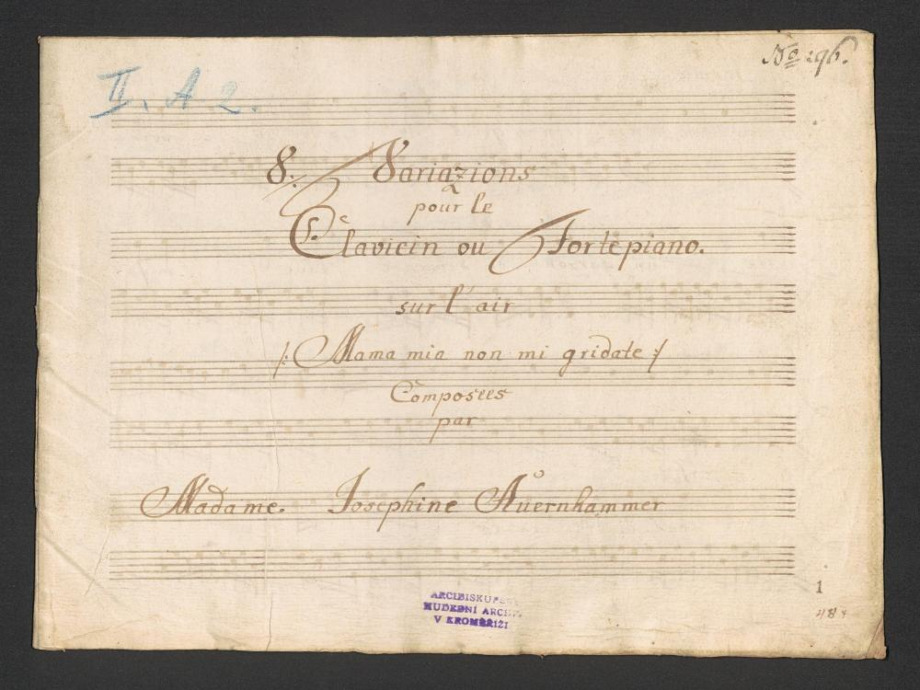 No 296.
II. A 2.
8. Variazions
pour le
Clavicin ou Fortepiano.
sur l'air
/: Mama mia non mi gridate :/
Composees
par
Madame. Josephine Auernhammer
1
ARCIBISKUPSKÝ
HUDEBNÍ ARCHIV
V KROMĚŘÍŽI